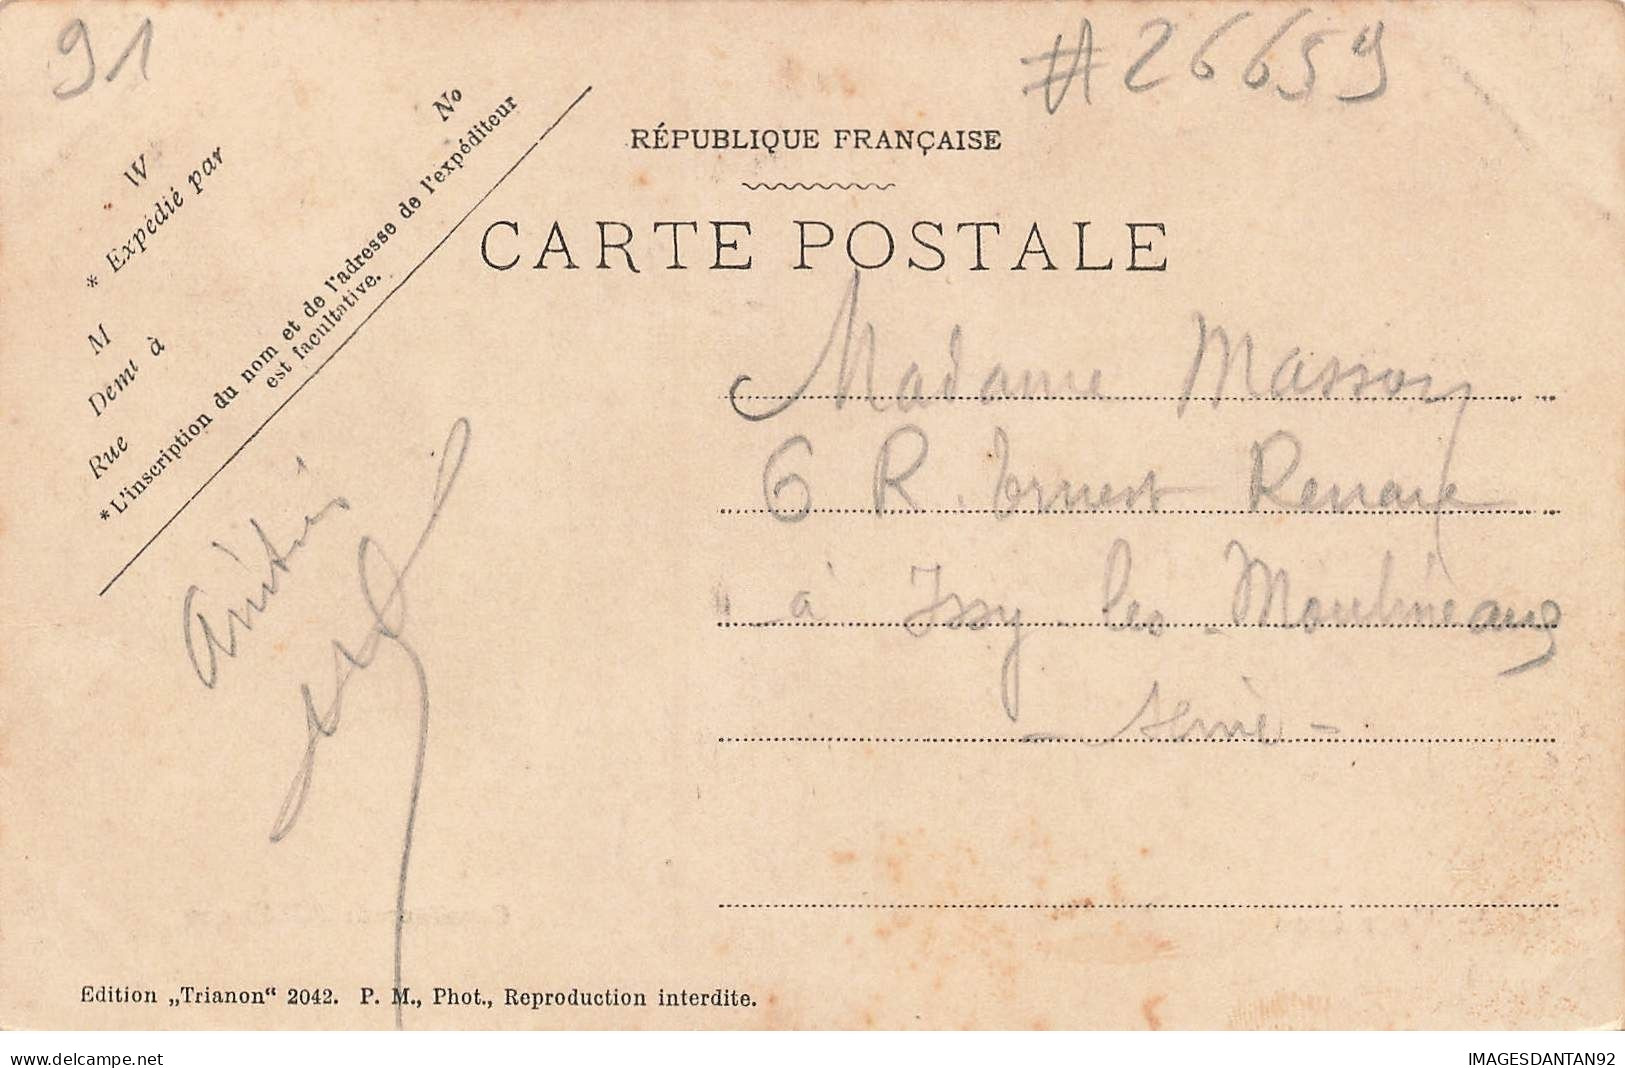 91
#26659
W
No
* Expédié par
M
Demt à
Rue
*L'inscription du nom et de l'adresse de l'expéditeur
est facultative.
RÉPUBLIQUE FRANÇAISE
CARTE POSTALE
Madame Masson
6 R. Ernest Renan
à Issy-les-Moulineaux
- Seine -
Amitiés
Edition „Trianon“ 2042. P. M., Phot., Reproduction interdite.
www.delcampe.net
IMAGESDANTAN92